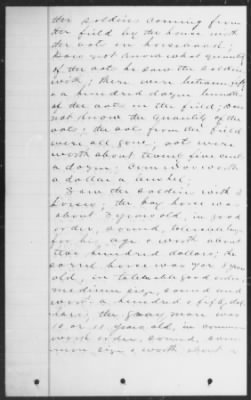 the soldiers coming from
the field by the house with
the oats on horseback;
does not know what quantity
of the oats he saw the soldiers
with; there were between fifty
& a hundred dozen bundles
of the oats in the field; does
not know the quantity of the
oats; the oats from the field
were all gone; oats were
worth about twenty five cents
a dozen; Corn was worth
a dollar a bushel;
I saw the soldiers with 3
horses; the bay horse was
about 7 years old, in good
order, sound,
for his age & worth about
two hundred dollars; the
sorrel horse was your 8 years
old, in tolerable good order,
medium size, sound and
worth a hundred & fifty dol
lars; the gray mare was
10 or 11 years old, in common
order, sound, com
mon size & worth about a